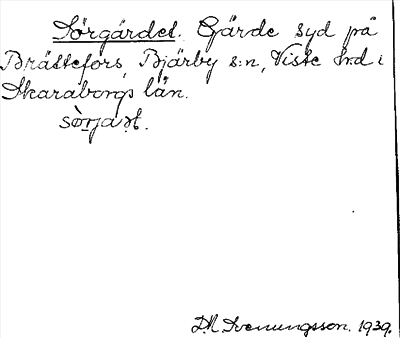 Sörgärdet. Gärde syd på
Brättefors, Bjärby s:n, Viste hrd i
Skaraborgs län.
M. Svenungsson. 1939.